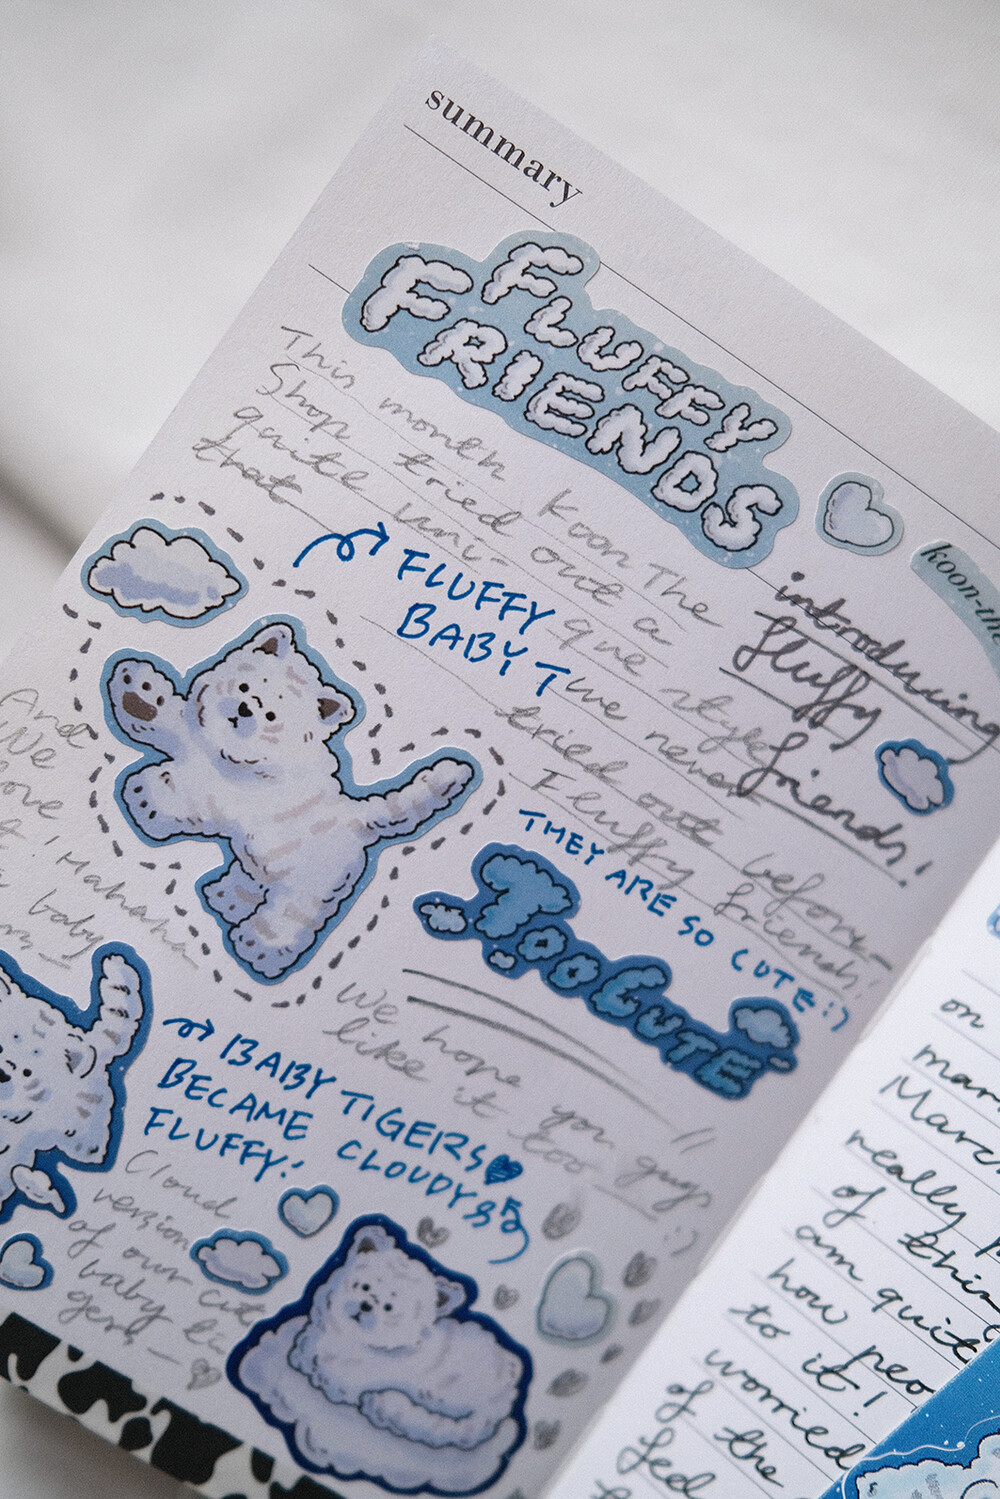 summary
FLUFFY
FRIENDS
koon-th
This month KoonThe
Shop tried out a
quite uni- que style
that we never
tried out before—
Fluffy friends!
introducing
fluffy
friends!
FLUFFY
BABY T
THEY ARE SO CUTE:)
TOO CUTE
And
we
love
it! Hahaha
baby
We hope you guys
like it too :)
BABY TIGERS
BECAME CLOUDY &
FLUFFY!
Cloud
version
of our cute
baby ti
gers—
on
mar
Marc
really
of thin
am quit
how peo
to it!
worried
of the
fed